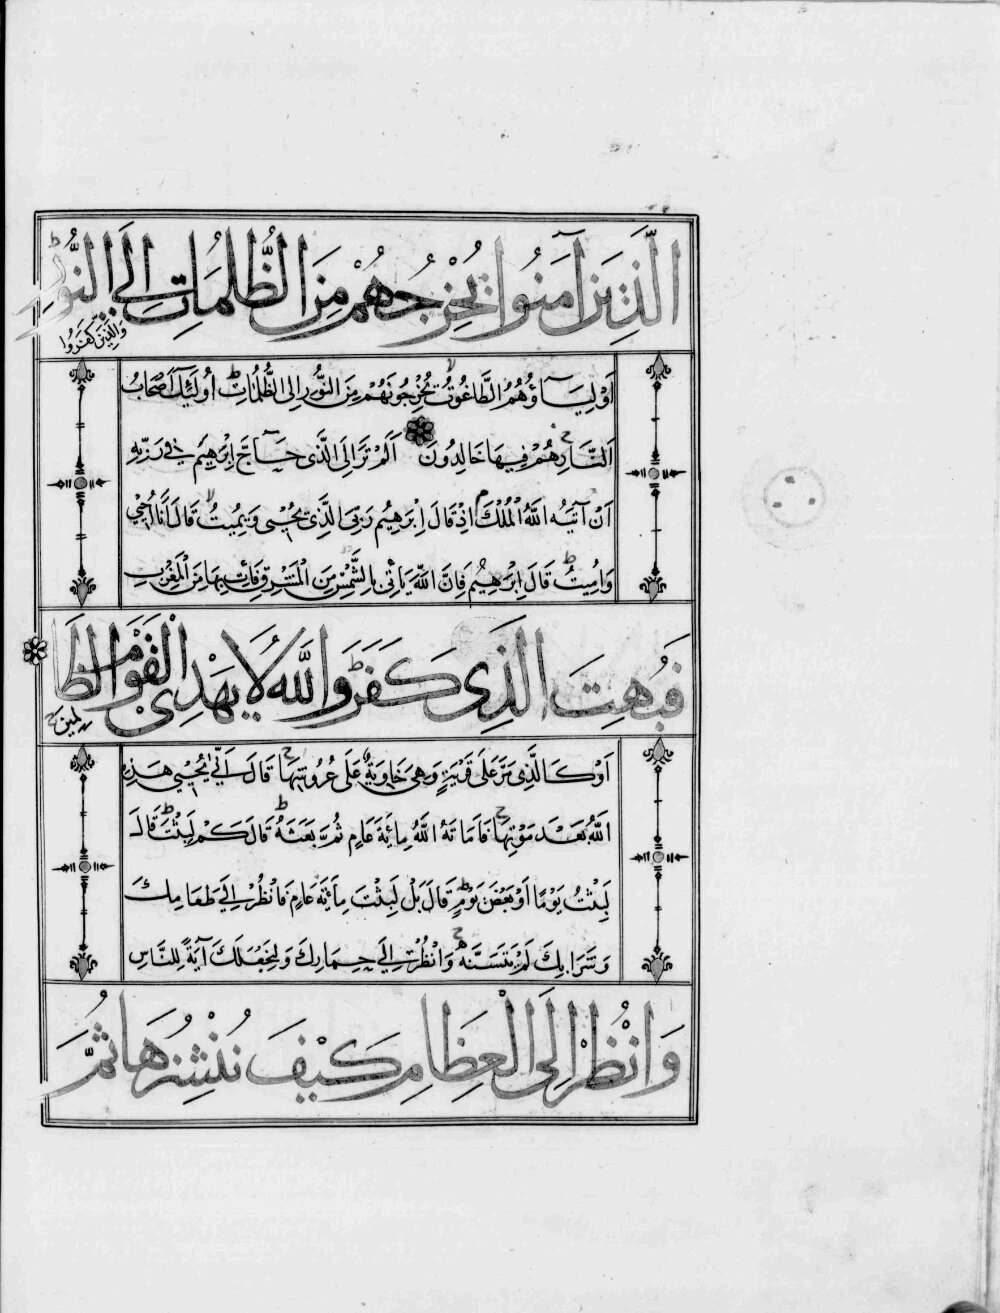 الَّذِينَ آمَنُوا يُخْرِجُهُمْ مِنَ الظُّلُمَاتِ إِلَى النُّورِ
وَالَّذِينَ كَفَرُوا
أَوْلِيَآؤُهُمُ الطَّاغُوتُ يُخْرِجُونَهُمْ مِنَ النُّورِ إِلَى الظُّلُمَاتِ أُولَئِكَ أَصْحَابُ
النَّارِ هُمْ فِيهَا خَالِدُونَ أَلَمْ تَرَ إِلَى الَّذِي حَآجَّ إِبْرَهِيمَ فِي رَبِّهِ
أَنْ آتَيهُ اللَّهُ الْمُلْكَ إِذْ قَالَ إِبْرَهِيمُ رَبِّيَ الَّذِي يُحْيِي وَيُمِيتُ قَالَ أَنَا أُحْيِي
وَأُمِيتُ قَالَ إِبْرَهِيمُ فَإِنَّ اللَّهَ يَأْتِي بِالشَّمْسِ مِنَ الْمَشْرِقِ فَأْتِ بِهَا مِنَ الْمَغْرِبِ
فَبُهِتَ الَّذِي كَفَرَ وَاللَّهُ لَا يَهْدِي الْقَوْمَ الظَّا
لِمِينَ
أَوْ كَالَّذِي مَرَّ عَلَى قَرْيَةٍ وَهِيَ خَاوِيَةٌ عَلَى عُرُوشِهَا قَالَ أَنَّى يُحْيِي هَذِهِ
اللَّهُ بَعْدَ مَوْتِهَا فَأَمَاتَهُ اللَّهُ مِائَةَ عَامٍ ثُمَّ بَعَثَهُ قَالَ كَمْ لَبِثْتَ قَالَ
لَبِثْتُ يَوْمًا أَوْ بَعْضَ يَوْمٍ قَالَ بَلْ لَبِثْتَ مِائَةَ عَامٍ فَانْظُرْ إِلَى طَعَامِكَ
وَشَرَابِكَ لَمْ يَتَسَنَّهْ وَانْظُرْ إِلَى حِمَارِكَ وَلِنَجْعَلَكَ آيَةً لِلنَّاسِ
وَانْظُرْ إِلَى الْعِظَامِ كَيْفَ نُنْشِزُهَا ثُمَّ